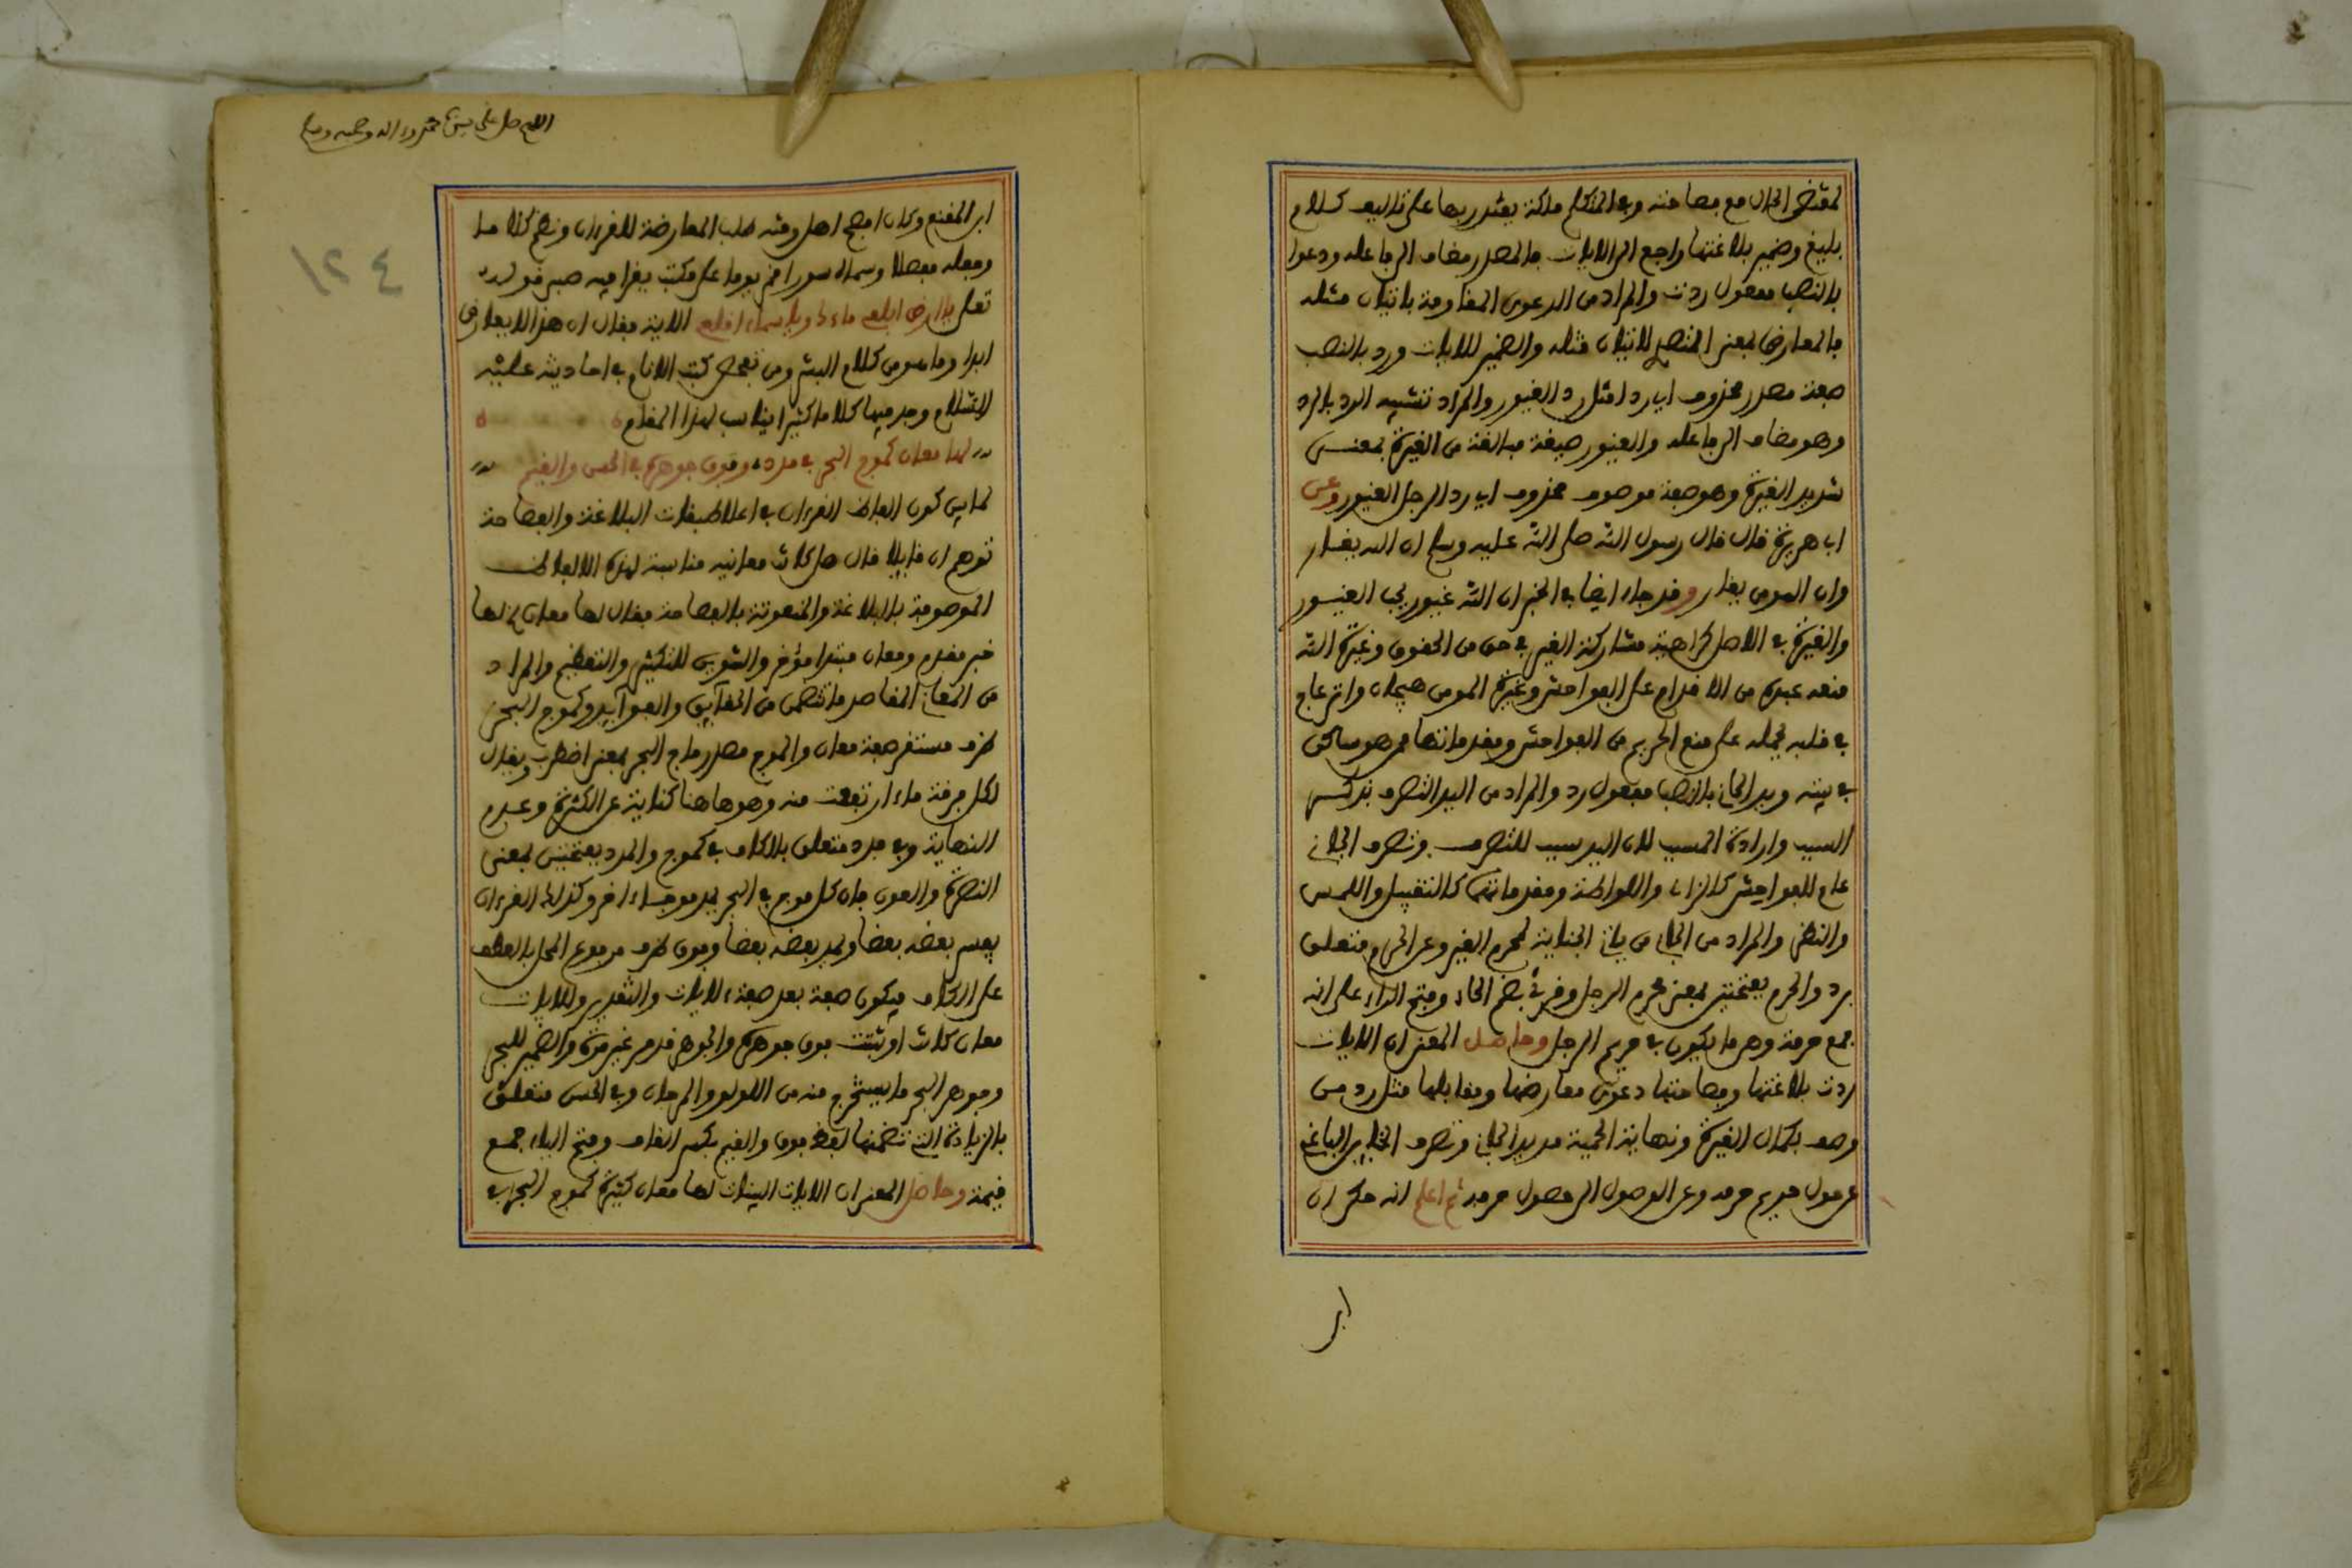 لمقتضى الحال مع فصاحته وفي المتكلم ملكة يقتدر بها على تاليف كلام
بليغ وضمير بلاغتها راجع الى الايات فالمصدر مضاف الى فاعله ودعوا
بالنصب مفعول ردت والمراد من الدعوى المقاومة باتيان مثله
فالمعارض بمعنى المتصدي للاتيان مثله والضمير للايات ورد بالنصب
صفة مصدر محذوف اي ردا مثل رد الغيور والمراد تشبيه الرد بالرد
وهو مضاف الى فاعله والغيور صيغة مبالغة من الغيرة بمعنى
شديد الغيرة وهو صفة موصوف محذوف اي رد الرجل الغيور وعن
ابي هريرة قال قال رسول الله صلى الله عليه وسلم ان الله يغار
وان المومن يغار وقد جاء ايضا في الخبر ان الله غيور يحب الغيور
والغيرة في الاصل كراهية مشاركة الغير في حق من الحقوق وغيرة الله
منعه عبده من الاقدام على الفواحش وغيرة المومن هيجان وانزعاج
في قلبه يحمله على منع الحريم من الفواحش ومقدماتها ممن هو ساكن
في بيته ويد الجاني بالنصب مفعول رد والمراد من اليد التصرف بذكر
السبب وارادة المسبب لان اليد سبب للتصرف وتصرف الجاني
عام للفواحش كالزنا واللواطة ومقدماتها كالتقبيل واللمس
والنظر والمراد من الجاني من ياتي الجناية لحرم الغير وعن الحرم متعلق
برد والحرم بفتحتين بمعنى محرم الرجل وقرئ بضم الحاء وفتح الراء على انه
جمع حرمة وهو ما يكون في حريم الرجل وحاصل المعنى ان الايات
ردت بلاغتها وفصاحتها دعوى معارضها ومقابلها مثل رد من
وصف بكمال الغيرة ونهاية الحمية مد يد الجاني وتصرف الباغي
عن حول حريم حرمه وعن الوصول الى حصول حرمه ثم اعلم انه حكي ان
ابن
اللهم صل على سيدنا محمد وءاله وصحبه وسلم
١٢٤
ابن المقفع وكان افصح اهل وقته طلب المعارضة للقرءان ونظم كلاما
وجعله مفصلا وسماه سورا فمر يوما على مكتب يقرا فيه صبي قوله
تعلى ياارض ابلعي ماءك وياسماء اقلعي الاية فقال ان هذا لا يعارض
ابدا وما هو من كلام البشر ومن تفحص كتب الانام في احاديث عليه
السلام وجد فيها كلاما كثيرا يناسب لهذا المقام
لها معان كموج البحر في مدد وفوق جوهره في الحسن والقيم
لما بين كون الفاظ القرءان في اعلا طبقات البلاغة والفصاحة
توهم ان قايلا قال هل كانت معانيه مناسبة لهذه الالفاظ
الموصوفة بالبلاغة والمنعوتة بالفصاحة فقال لها معان لها
خبر مقدم ومعان مبتدا مؤخر والتنوين للتكثير والتعظيم والمراد
من المعاني المقاصد ما تتضمن من الحقايق والفوايد وكموج البحر
ظرف مستقر صفة معان والموج مصدر ماج البحر بمعنى اضطرب ويقال
لكل فرقة ماء ارتفعت منه وهو هاهنا كناية عن الكثرة وعدم
النهاية وفي مدد متعلق بالكاف في كموج والمدد بفتحتين بمعنى
النصرة والعون فان كل موج في البحر يمد موجا ءاخر وكذلك القرءان
يفسر بعضه بعضا ويمد بعضه بعضا وفوق ظرف مرفوع المحل بالعطف
على الكاف فيكون صفة بعد صفة للايات والتقدير وللايات
معان كانت او ثبتت فوق جوهره والجوهر قد مر غير مرة والضمير للبحر
وجوهر البحر ما يستخرج منه من اللولو والمرجان وفي الحسن متعلق
بالزيادة التي تضمنها لفظ فوق والقيم بكسر القاف وفتح الياء جمع
قيمة وحاصل المعنى ان الايات البينات لها معان كثيرة كموج البحر في